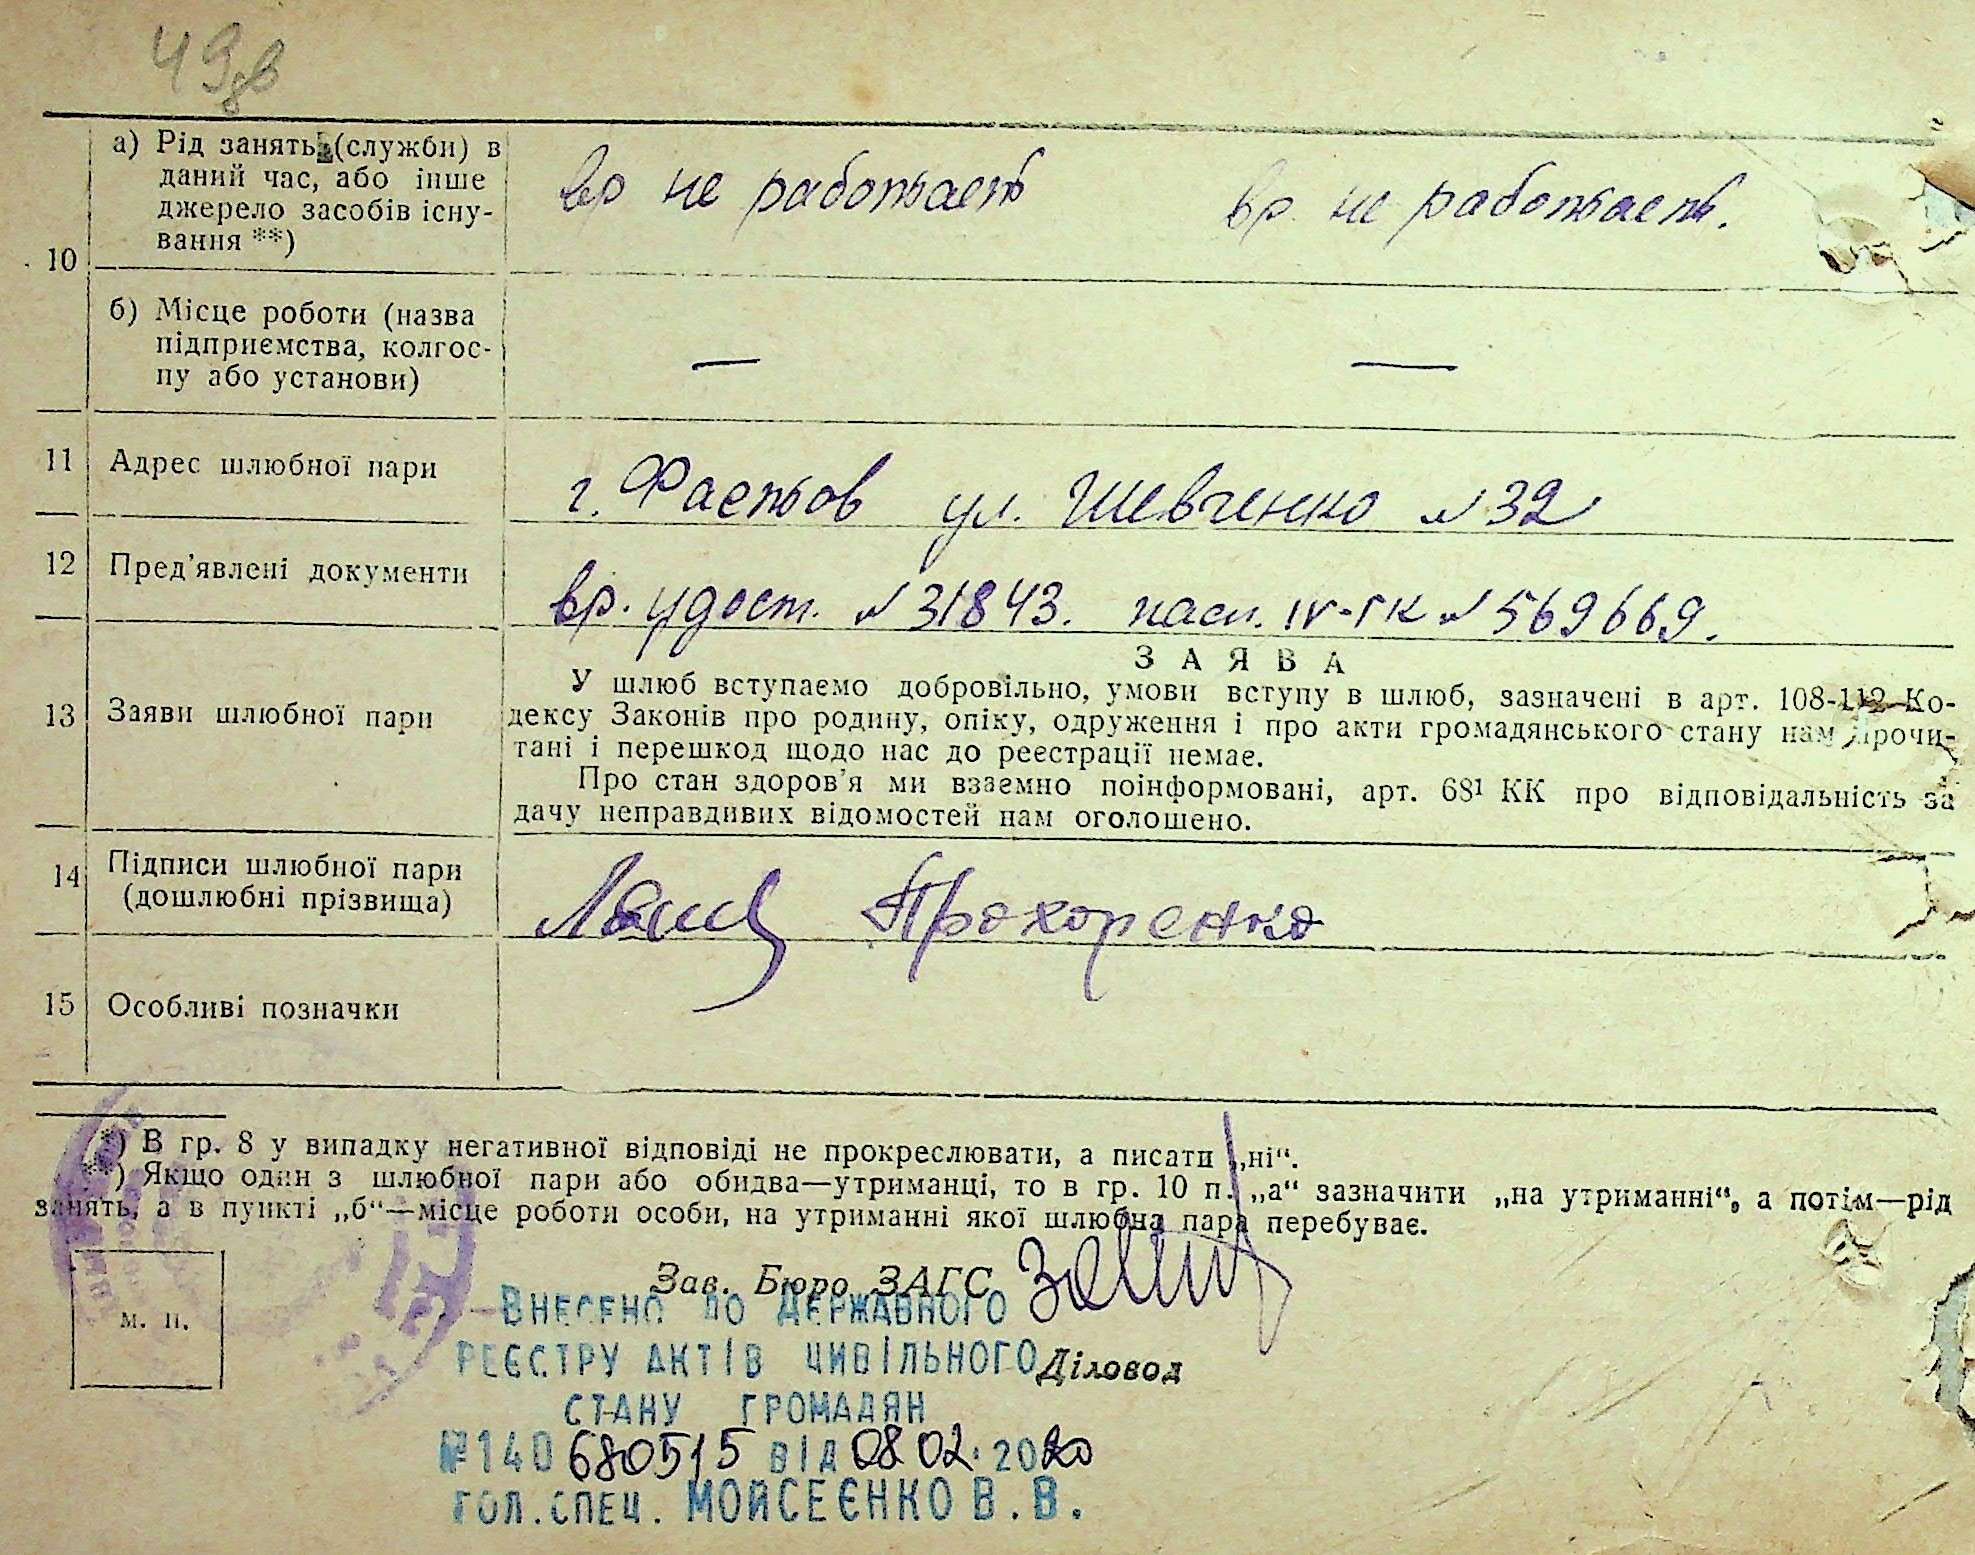 49зв
10
а) Рід занять (служби) в
даний час, або інше
джерело засобів існу-
вання **)
вр не работает
вр. не работает.
б) Місце роботи (назва
підприємства, колгос-
пу або установи)
—
—
11
Адрес шлюбної пари
г. Фастов ул. Шевченко №32
12
Пред'явлені документи
вр. удост. №31843. пасп. IV-ГК №569669.
13
Заяви шлюбної пари
ЗАЯВА
У шлюб вступаємо добровільно, умови вступу в шлюб, зазначені в арт. 108-112 Ко-
дексу Законів про родину, опіку, одруження і про акти громадянського стану нам прочи-
тані і перешкод щодо нас до реєстрації немає.
Про стан здоров'я ми взаємно поінформовані, арт. 68¹ КК про відповідальність за
дачу неправдивих відомостей нам оголошено.
14
Підписи шлюбної пари
(дошлюбні прізвища)
Прохоренко
15
Особливі позначки
*) В гр. 8 у випадку негативної відповіді не прокреслювати, а писати „ні“.
**) Якщо один з шлюбної пари або обидва—утриманці, то в гр. 10 п. „а“ зазначити „на утриманні“, а потім—рід
занять, а в пункті „б“—місце роботи особи, на утриманні якої шлюбна пара перебуває.
М. П.
Зав. Бюро ЗАГС
ВНЕСЕНО ДО ДЕРЖАВНОГО
РЕЄСТРУ АКТІВ ЦИВІЛЬНОГО
Діловод
СТАНУ ГРОМАДЯН
№140 680515 ВІД 08 02. 2020
ГОЛ. СПЕЦ. МОЙСЕЄНКО В. В.